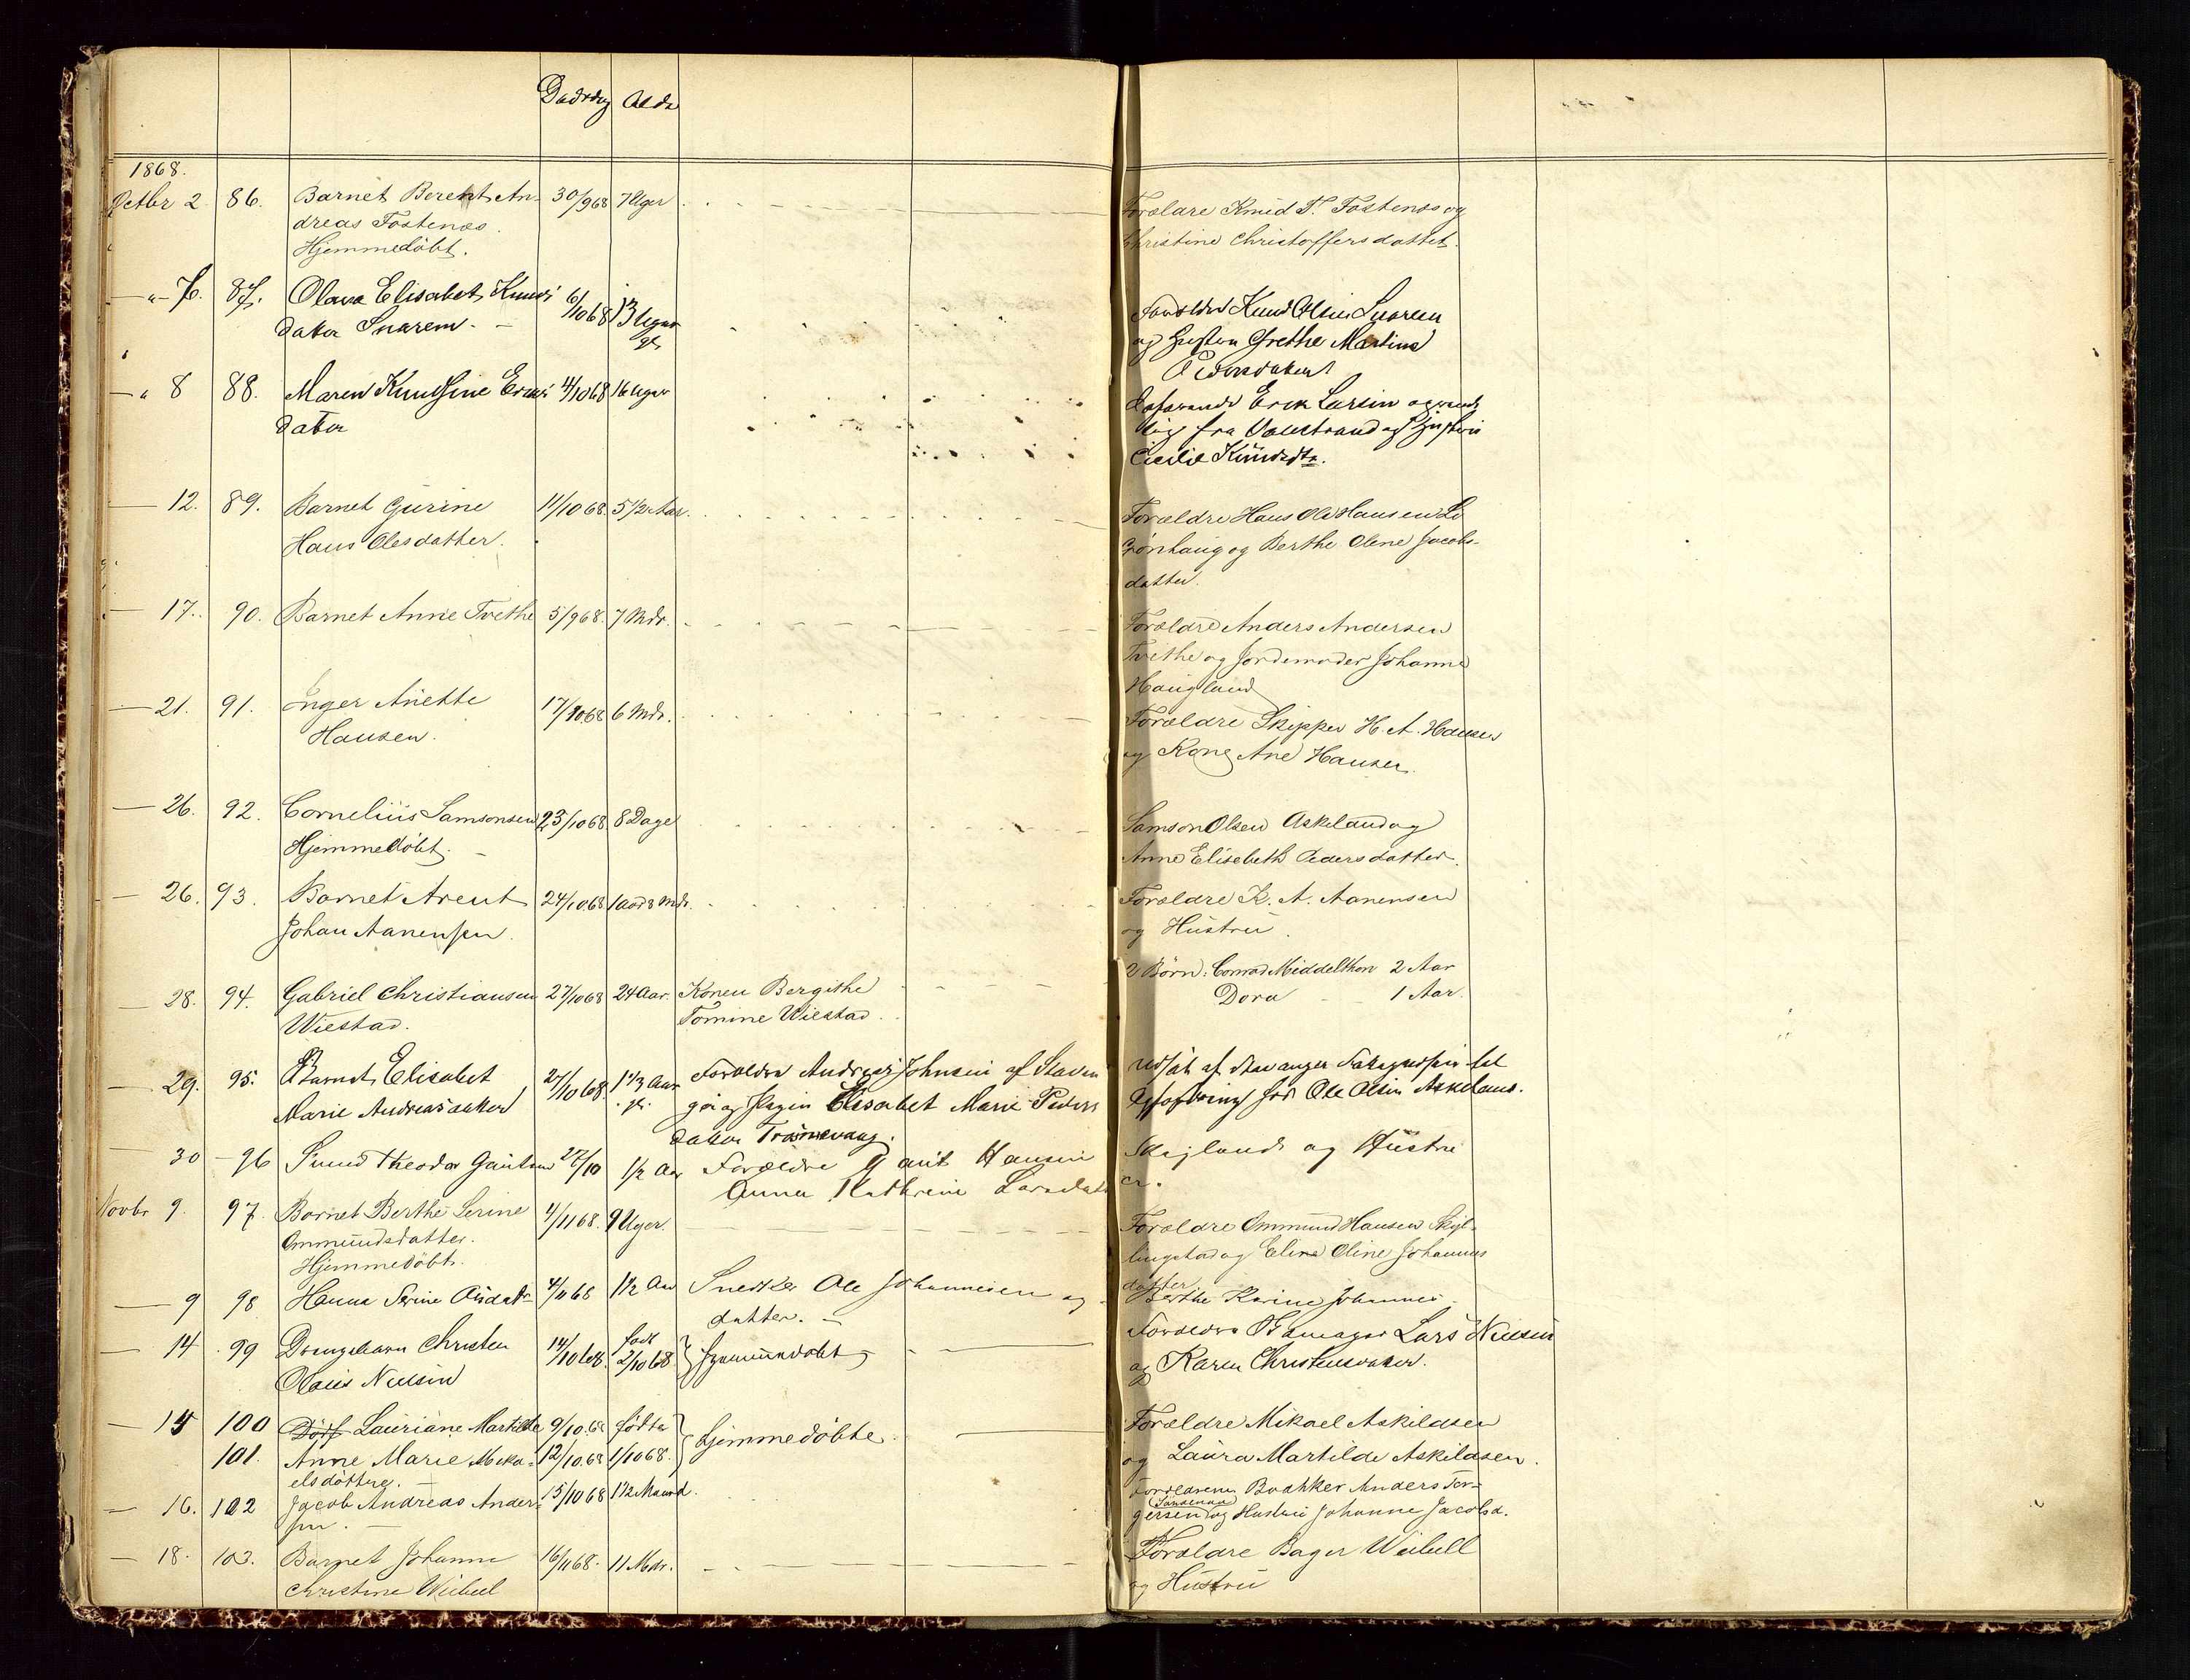 Dødsdag Alder
1868.
Octbr 2 86. Barnet Berent An- 30/9 68 7 Uger Forældre Knud T. Fostenæs og
dreas Fostenæs. Christine Christoffersdatter.
Hjemmedöbt.
" 7. 87. Olava Elisabet Knuds 6/10 68 13 Uger Forældre Knud Olsen Snarem
datter Snarem. gl. og Hustru Grethe Martine
Pedersdatter
" 8 88. Maren Knudsine Ericks 4/10 68 16 Uger Søfarende Erik Larsen
datter fra og Hustru
Cicilie Knudsdtr.
12. 89. Barnet Gurine 11/10 68. 5 1/2 Aar. Forældre Hans Ole Hansen
Hans Olesdatter. Grönhaug og Berthe Olene Jacobs-
datter.
17. 90. Barnet Anne Tvethe 5/9 68. 7 Mdr. Forældre Anders Andersen
Tvethe og Jordemoder Johanne
Haugland
21. 91. Inger Anette 17/10 68 6 Mdr. Forældre Skipper H. A. Hansen
Hansen. og Kone Ane Hansen.
26. 92. Cornelius Samsonsen 23/10 68 8 Dage Samson Olsen Askeland og
Hjemmedöbt. Anne Elisebeth Pedersdatter.
26. 93. Barnet Arent 24/10 68. 1 Aar 8 Mdr. Forældre K. A. Aanensen
Johan Aanensen. og Hustru.
2 Börn: Conrad Middelthon 2 Aar
28. 94. Gabriel Christiansen 27/10 68 24 Aar. Konen Bergithe Dora 1 Aar.
Wiestad. Tomine Wiestad.
29. 95. Barnet Elisabet 27/10 68 1 1/3 Aar Forældre Andreas Johnsen af Stavan udsat af Stavanger
Marie Andreasdatter gl. ger og Pigen Elisabet Marie Peders Opfostring hos Ole Olsen Askeland.
datter Tranevaag.
30 96 Svend Theodor Gautsen 27/10 1/2 Aar Forældre Gaut Hansen Skeglund og Hustru
Anna Kathrine Larsdatt er.
Novbr 9. 97. Barnet Berthe Serine 4/11 68. 9 Uger. Forældre Ommund Hansen Skjel-
Ommundsdatter. lingstad og Eline Oline Johannes
Hjemmedöbt. datter
9 98 Hanna Serine Olsdatr 4/11 68 1 1/2 Aar Snedker Ole Johannesen og Berthe Karine Johannes
datter.
14 99 Drengebarn Christen 14/10 68. født 2/10 68. Hjemmedøbt Forældre Lars Nielsen
Olaus Nielsen og Karen Christensdatter.
15 100 Döpf Lauriane Martilde 9/10 68 fødte Hjemmedöbte Forældre Mikael Askildsen
101. Anne Marie Mika- 12/10 68 1/10 68. og Laura Martilde Askildsen.
elsdöttre.
16. 102 Jacob Andreas Ander- 15/10 68 1 1/2 Maaned. Forældrene Bødker Anders Tor-
sen. gersen og Hustru Johanne Jacobsd.
18. 103. Barnet Johanne 16/11 68. 11 Mdr. Forældre Bager Weibell
Christine Wiebell og Hustru